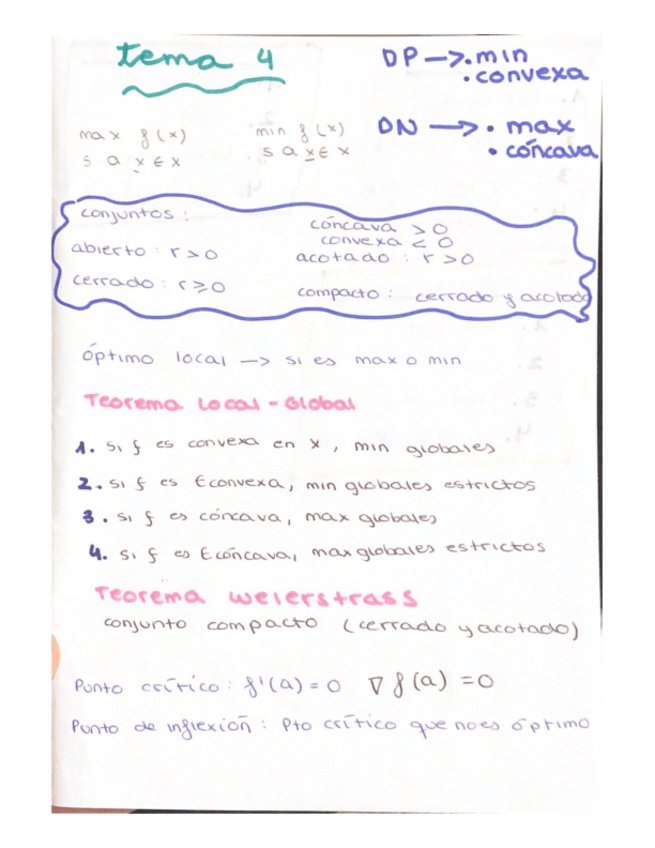 tema 4
DP → • min
• convexa
max f(x)
s a x ∈ x
min f(x)
s a x ∈ x
DN → • max
• cóncava
conjuntos:
cóncava > 0
convexa < 0
abierto: r > 0
acotado: r > 0
cerrado: r ≥ 0
compacto: cerrado y acotado
óptimo local → si es max o min
Teorema Local - Global
1. Si f es convexa en x, min globales
2. Si f es Econvexa, min globales estrictos
3. Si f es cóncava, max globales
4. Si f es Ecóncava, max globales estrictos
Teorema Weierstrass
conjunto compacto (cerrado y acotado)
Punto crítico: f'(a) = 0 ∇ f(a) = 0
Punto de inflexión: Pto crítico que no es óptimo